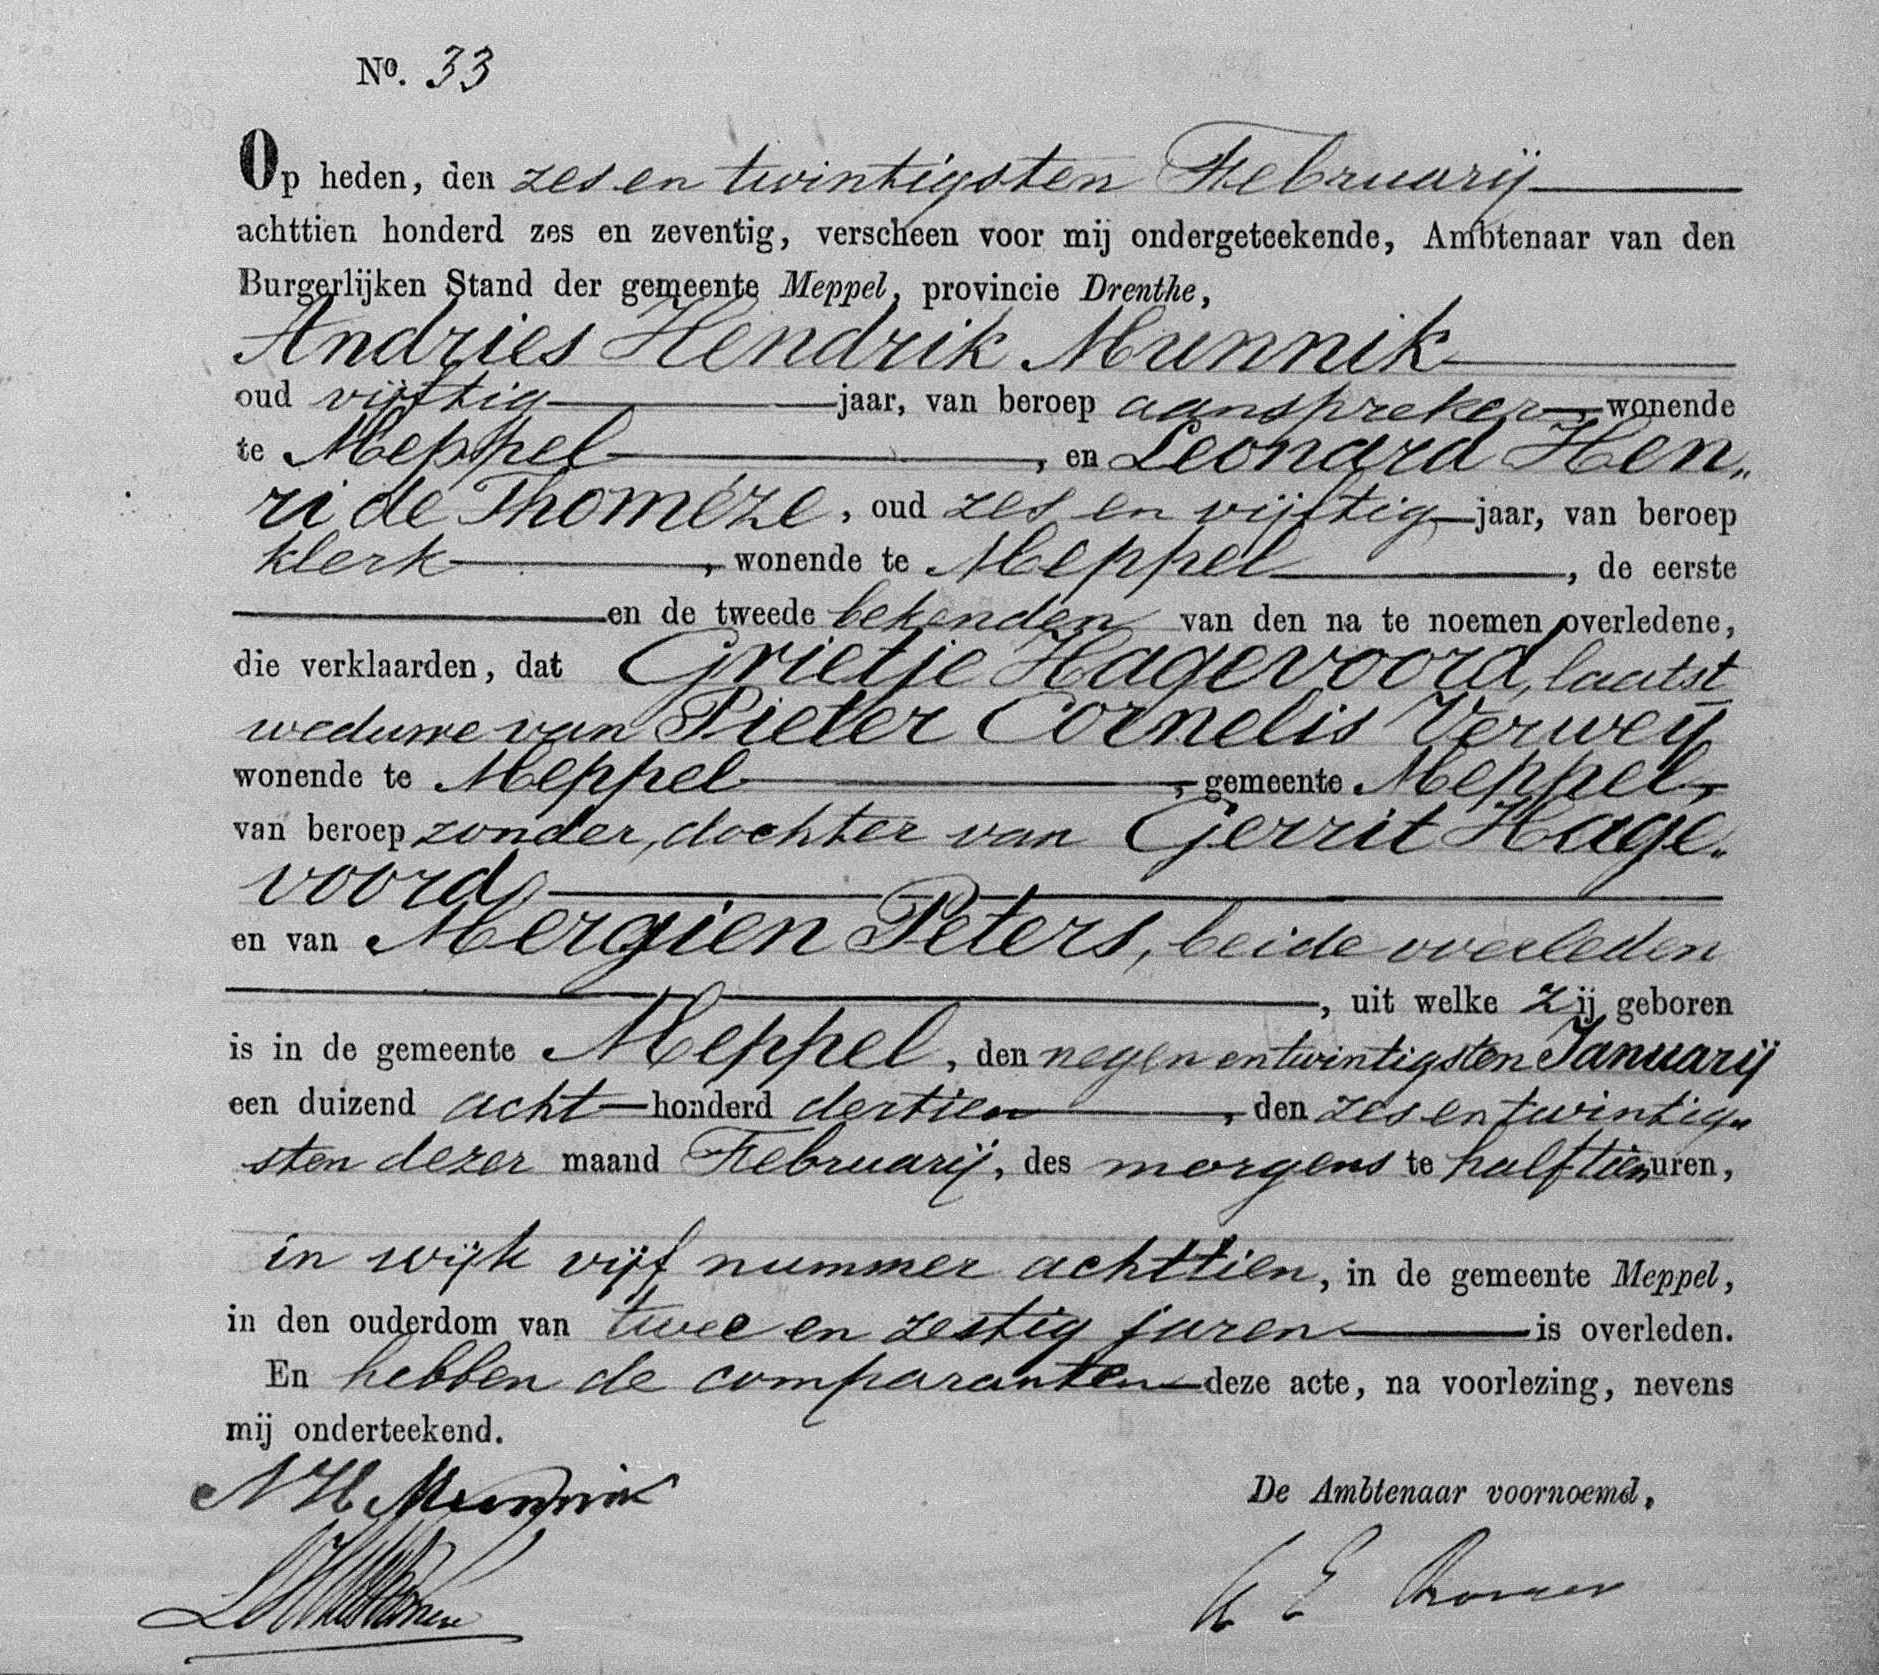 No. 33
Op heden, den zes en twintigsten Februarij
achttien honderd zes en zeventig, verscheen voor mij ondergeteekende, Ambtenaar van den
Burgerlijken Stand der gemeente Meppel, provincie Drenthe,
Andries Hendrik Munnik
oud vijftig jaar, van beroep aanspreker, wonende
te Meppel, en Leonard Hen„
ri de Thoméze, oud zes en vijftig jaar, van beroep
klerk, wonende te Meppel, de eerste
en de tweede bekenden van den na te noemen overledene,
die verklaarden, dat Grietje Hagevoord, laatst
weduwe van Pieter Cornelis Verweij
wonende te Meppel, gemeente Meppel,
van beroep zonder, dochter van Gerrit Hage„
voord,
en van Mergien Peters, beide overleden
, uit welke zij geboren
is in de gemeente Meppel, den negen en twintigsten Januarij
een duizend acht honderd dertien, den zes en twintig„
sten dezer maand Februarij, des morgens te half tien uren,
in wijk vijf nummer achttien, in de gemeente Meppel,
in den ouderdom van twee en zestig jaren is overleden.
En hebben de comparanten deze acte, na voorlezing, nevens
mij onderteekend.
A H Munnik
De Ambtenaar voornoemd,